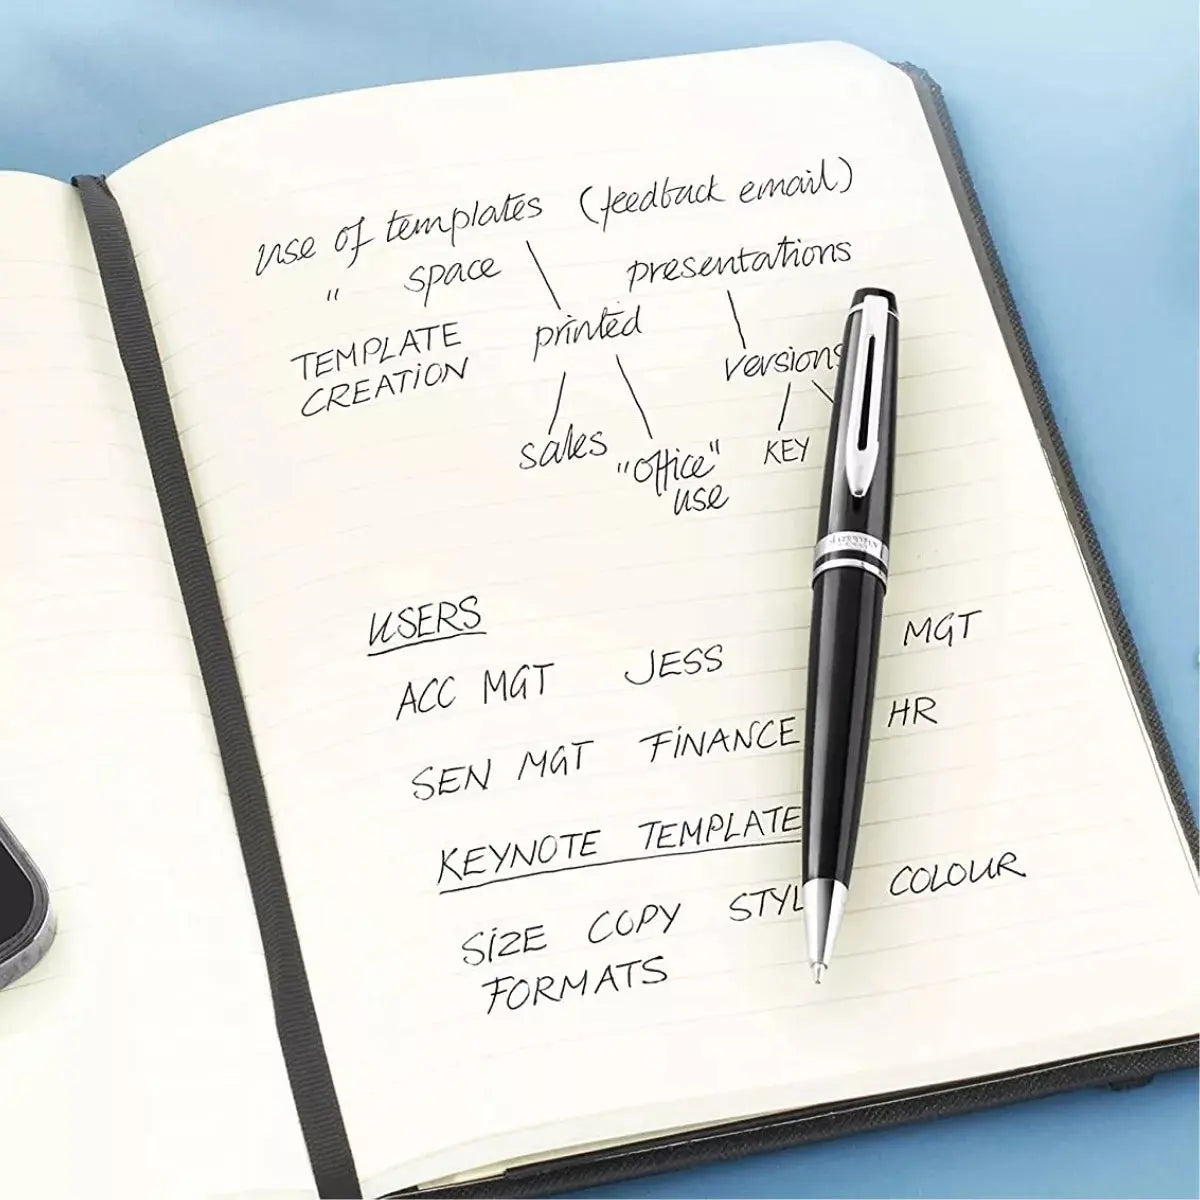 use of templates (feedback email)
" space presentations
TEMPLATE printed
CREATION versions
sales "office" KEY
use
USERS
ACC MGT JESS MGT
SEN MGT FINANCE HR
KEYNOTE TEMPLATE
SIZE COPY STYL COLOUR
FORMATS